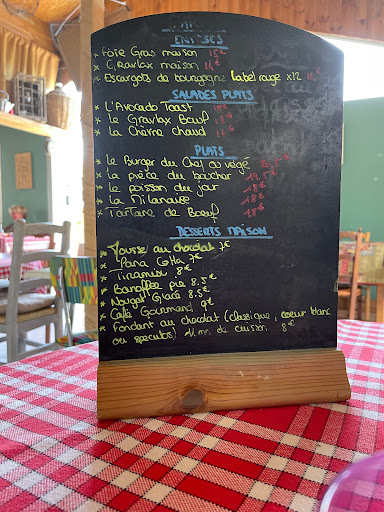 ENTRÉES
* Foie Gras maison 15€
* Gravlax maison
* Escargots de bourgogne Label rouge x12
SALADES PLATS
* L'Avocado Toast
* Le Gravlax Bowl
* La Chèvre chaud
PLATS
* Le Burger du Chef ou végé
* La pièce du boucher
* Le poisson du jour 18€
* La Milanaise
* Tartare de Boeuf
DESSERTS MAISON
* Mousse au chocolat 7€
* Pana Cotta 7€
* Tiramisu 8€
* Banoffee pie 8.5€
* Nougat Glacé 8.5€
* Café Gourmand 9€
* Fondant au chocolat (classique, coeur blanc
ou speculos) mn de cuisson 8€